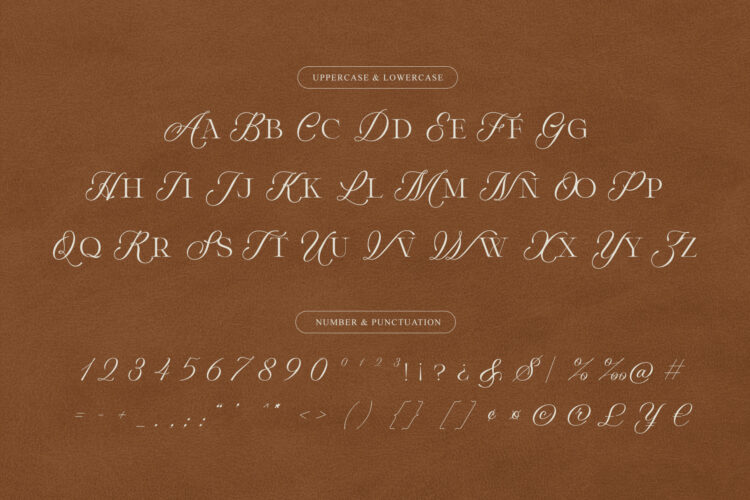 UPPERCASE & LOWERCASE
Aa Bb Cc Dd Ee Ff Gg
Hh Ii Jj Kk Ll Mm Nn Oo Pp
Qq Rr Ss Tt Uu Vv Ww Xx Yy Zz
NUMBER & PUNCTUATION
1 2 3 4 5 6 7 8 9 0 ⁰ ¹ ² ³ ! ¡ ? ¿ & $ | % ‰ @ #
= - + _ . , ; : “ ' ^ * < > ( ) { } [ ] ¢ ¤ © ® £ ¥ €